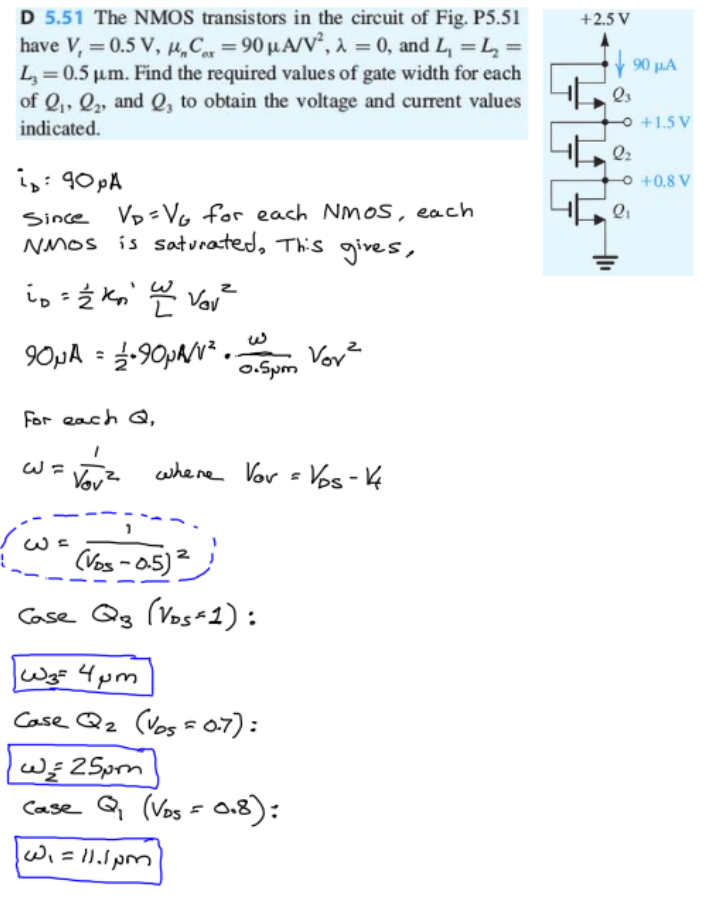 D 5.51 The NMOS transistors in the circuit of Fig. P5.51
have Vₜ = 0.5 V, μₙCₒₓ = 90 μA/V², λ = 0, and L₁ = L₂ =
L₃ = 0.5 μm. Find the required values of gate width for each
of Q₁, Q₂, and Q₃ to obtain the voltage and current values
indicated.
+2.5 V
90 μA
Q₃
+1.5 V
Q₂
+0.8 V
Q₁
i_D: 90μA
Since V_D=V_G for each NMOS, each
NMOS is saturated. This gives,
i_D = 1/2 kₙ' W/L V_ov²
90μA = 1/2·90μA/V² · W/0.5μm V_ov²
For each Q,
W = 1/V_ov² where V_ov = V_DS - Vₜ
W = 1/(V_DS - 0.5)²
Case Q₃ (V_DS=1):
W₃= 4μm
Case Q₂ (V_DS = 0.7):
W₂= 25μm
Case Q₁ (V_DS = 0.8):
W₁ = 11.1μm